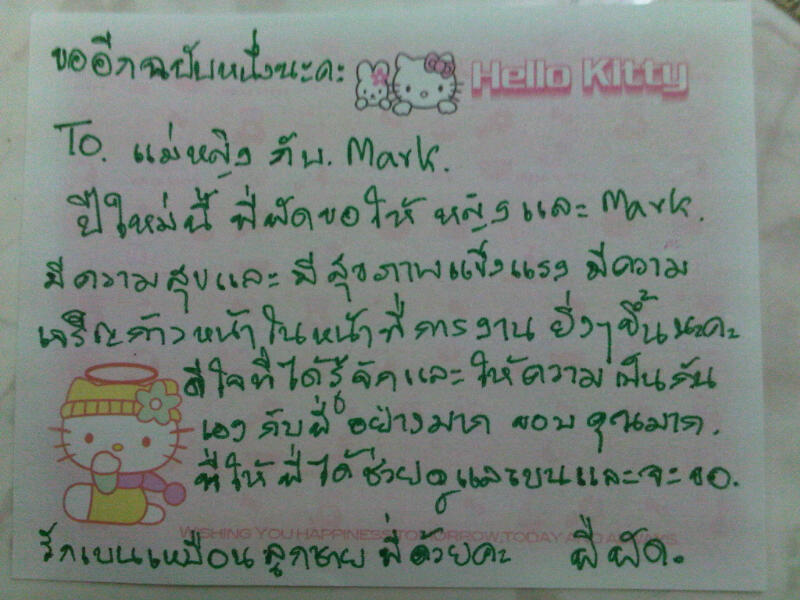 ขออีกฉบับหนึ่งนะคะ
Hello Kitty
To. แม่หญิง กับ. Mark.
ปีใหม่นี้ พี่ผัดขอให้ หญิง และ Mark.
มีความสุขและ มีสุขภาพแข็งแรง มีความ
เจริญก้าวหน้าในหน้าที่การงาน ยิ่งๆขึ้นนะคะ
ดีใจที่ได้รู้จักและให้ความเป็นกัน
เอง กับพี่ อย่างมาก ขอบคุณมาก.
ที่ให้พี่ได้ช่วยดูแลเบนและจะขอ.
WISHING YOU HAPPINESS TOMORROW, TODAY AND ALWAYS.
รักเบนเหมือนลูกชายพี่ด้วยคะ พี่ผัด.